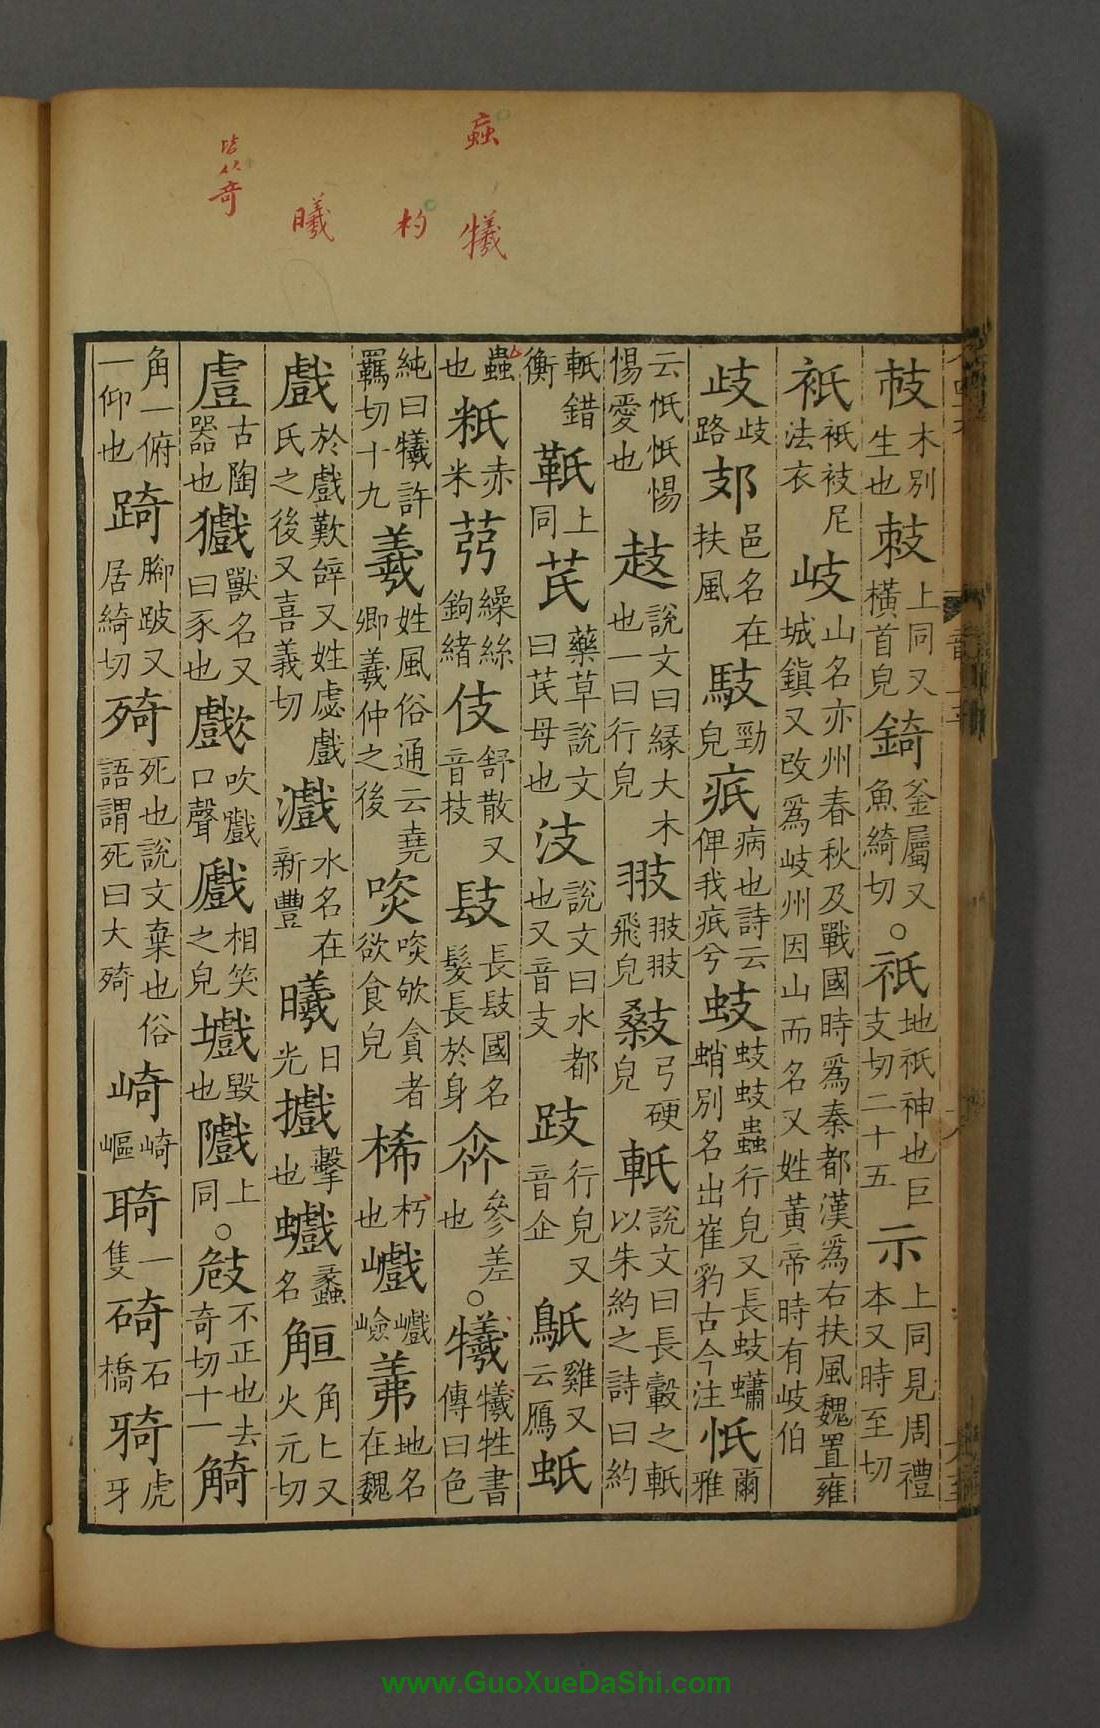 木別生也 上同又橫首皃錡釜屬又魚綺切○祇地祇神也巨支切二十五示上同見周禮本又時至切
衹衹衼尼法衣岐山名亦州春秋及戰國時爲秦都漢爲右扶風魏置雍城鎭又改爲岐州因山而名又姓黃帝時有岐伯
歧歧路𨙸邑名在扶風馶勁皃疧病也詩云俾我疧兮蚑蚑蚑蟲行皃又長蚑蠨蛸別名出崔豹古今注忯爾雅
云忯忯惕惕愛也䞚說文曰緣大木也一曰行皃翄翄翄飛皃 弓硬皃軝說文曰長轂之軝以朱約之詩曰約
軝錯衡 上同芪藥草說文曰芪母也汥說文曰水都也又音支跂行皃又音企 雞又云鴈蚔
蟲也 赤米 繰絲鉤緒伎舒散又音技 長 國名髮長於身 參差也○犧犧牲書傳曰色
純曰犧許羈切十九羲姓風俗通云堯卿羲仲之後 欨貪者欲食皃桸杇也巇巇嶮羛地名在魏
戲於戲歎辝又姓虙戲氏之後又喜義切 水名在新豐曦日光 擊也 蠡名 角匕又火元切
䖒古陶器也 獸名又曰豕也 吹戲口聲 相笑之皃 毀也 上同○ 不正也去奇切十一觭
角一俯一仰也踦腳跛又居綺切 死也說文棄也俗語謂死曰大 崎崎嶇 一隻碕石橋 虎牙
蟲
犧
杇
曦
皆从奇
www.GuoXueDaShi.com